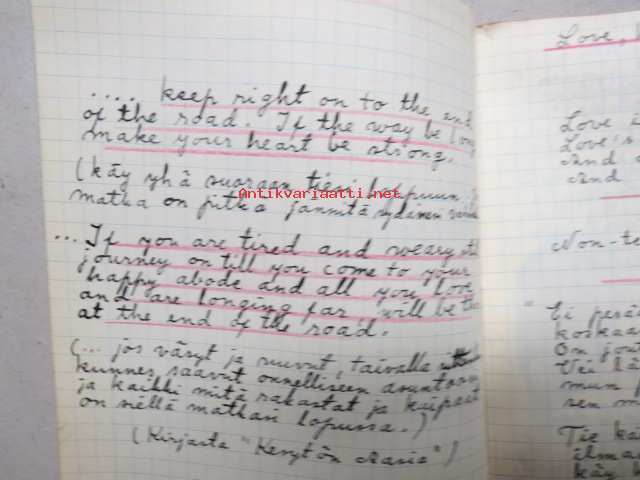 .... keep right on to the end
of the road. If the way be long
make your heart be strong.
(käy yhä suoraan tiesi loppuun
matka on pitkä jännitä sydämesi
... If you are tired and weary still
journey on till you come to your
happy abode and all you love
and are longing for, will be there
at the end of the road.
(... jos väsyt ja nuivut, taivalla
kunnes saavut onnelliseen asuntoosi
ja kaikki mitä rakastat ja kaipaat
on siellä matkasi lopussa.)
(Kirjasta "Kevytön
Love,
Love
Love's
And
And
Non-te
"Ei perä
koskaa
Om jout
Vei lä
mun
sen m
Tie kä
ilma
käy
Antikvariaatti.net